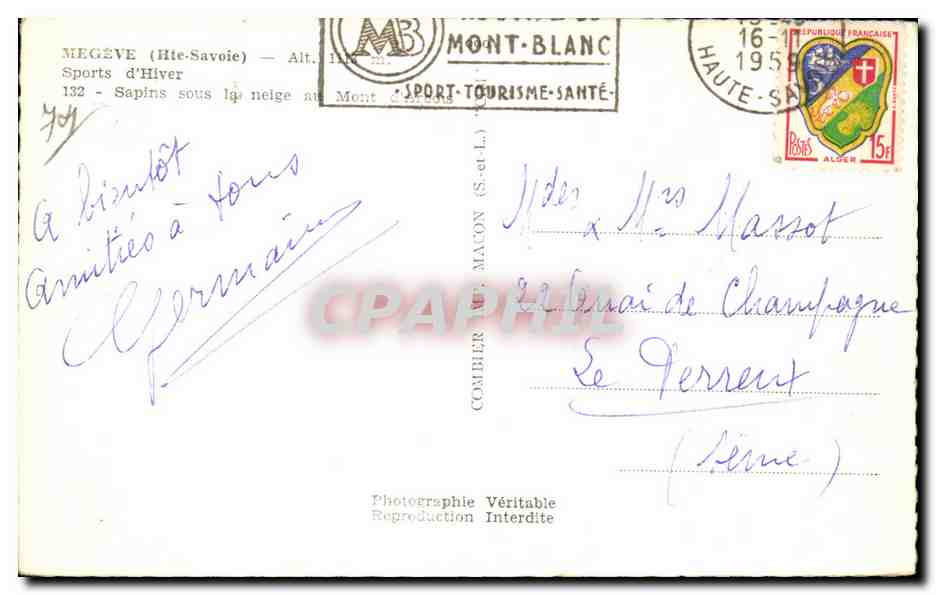 MEGÈVE (Hte-Savoie) — Alt. 1113 m.
Sports d'Hiver
132 - Sapins sous la neige au Mont d'Arbois
MB
MONT-BLANC
SPORT-TOURISME-SANTÉ-
16-1
1959
HAUTE-SAV
RÉPUBLIQUE FRANÇAISE
POSTES
15F
ALGER
A bientôt
Amitiés à tous
Germaine
COMBIER IMP. MACON (S.-et-L.)
Mdes & Mrs Massot
22 Quai de Champagne
Le Perreux
(Seine)
CPAPHIL
Photographie Véritable
Reproduction Interdite